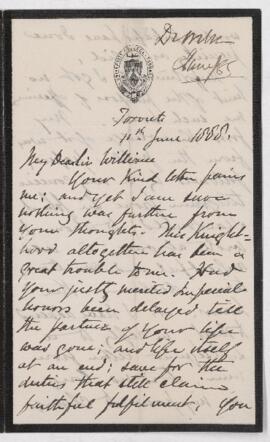 Toronto
11th June 1888.
My Dear Sir William
Your kind letter pains
me; and yet I am sure
nothing was further from
your thoughts. This Knight-
hood altogether has been a
great trouble to me. Had
your justly merited Imperial
honors been delayed till
the partner of your life
was gone; and life itself
at an end; save for the
duties that still claim
faithful fulfilment, you